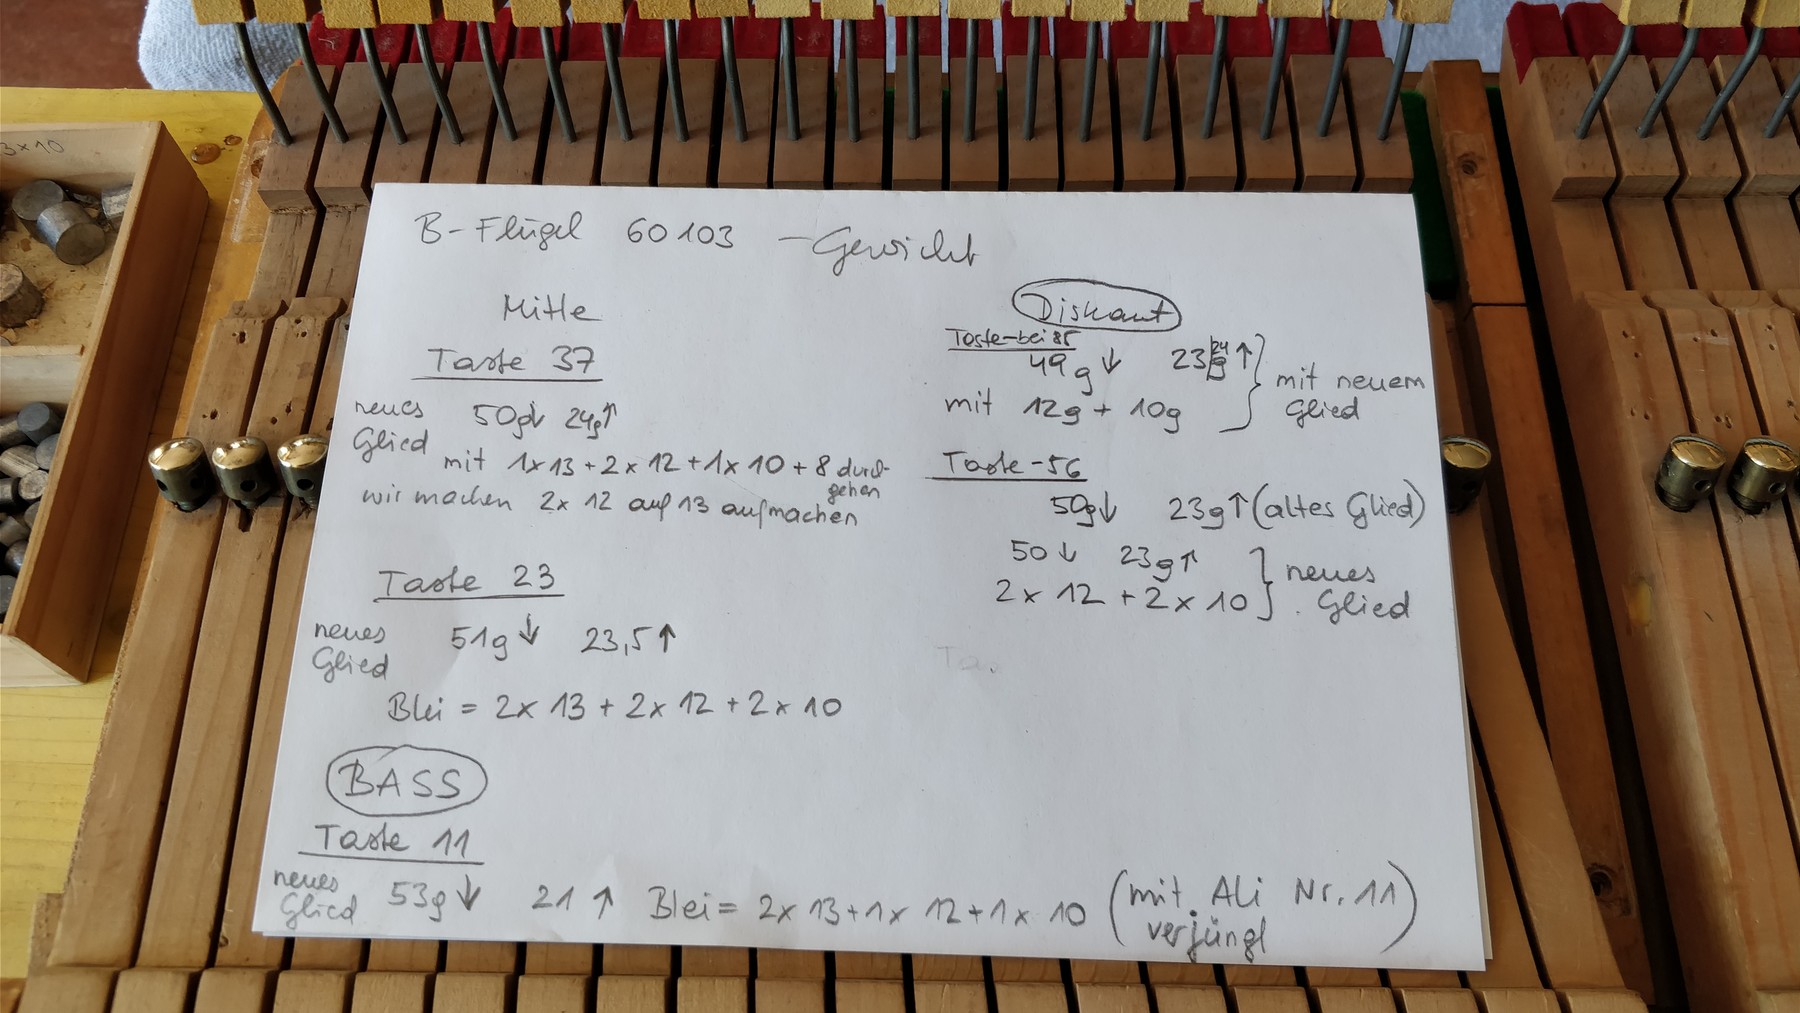 3x10
B-Flügel 60103 - Gewicht
Mitte
Taste 37
neues Glied 50g↓ 24g↑
mit 1x13+2x12+1x10+8 durch-
gehen
wir machen 2x 12 auf 13 aufmachen
Taste 23
neues Glied 51g↓ 23,5↑
Blei = 2x 13 + 2x 12 + 2x 10
BASS
Taste 11
neues Glied 53g↓ 21↑ Blei = 2x 13+1x 12+1x 10 (mit Ali Nr. 11)
verjüngt
Diskant
Taste-bei 85
49g↓ 23g 24↑
mit 12g + 10g
} mit neuem
Glied
Taste-56
50g↓ 23g↑ (altes Glied)
50↓ 23g↑
2x 12 + 2x 10
} neues
Glied
Ta.